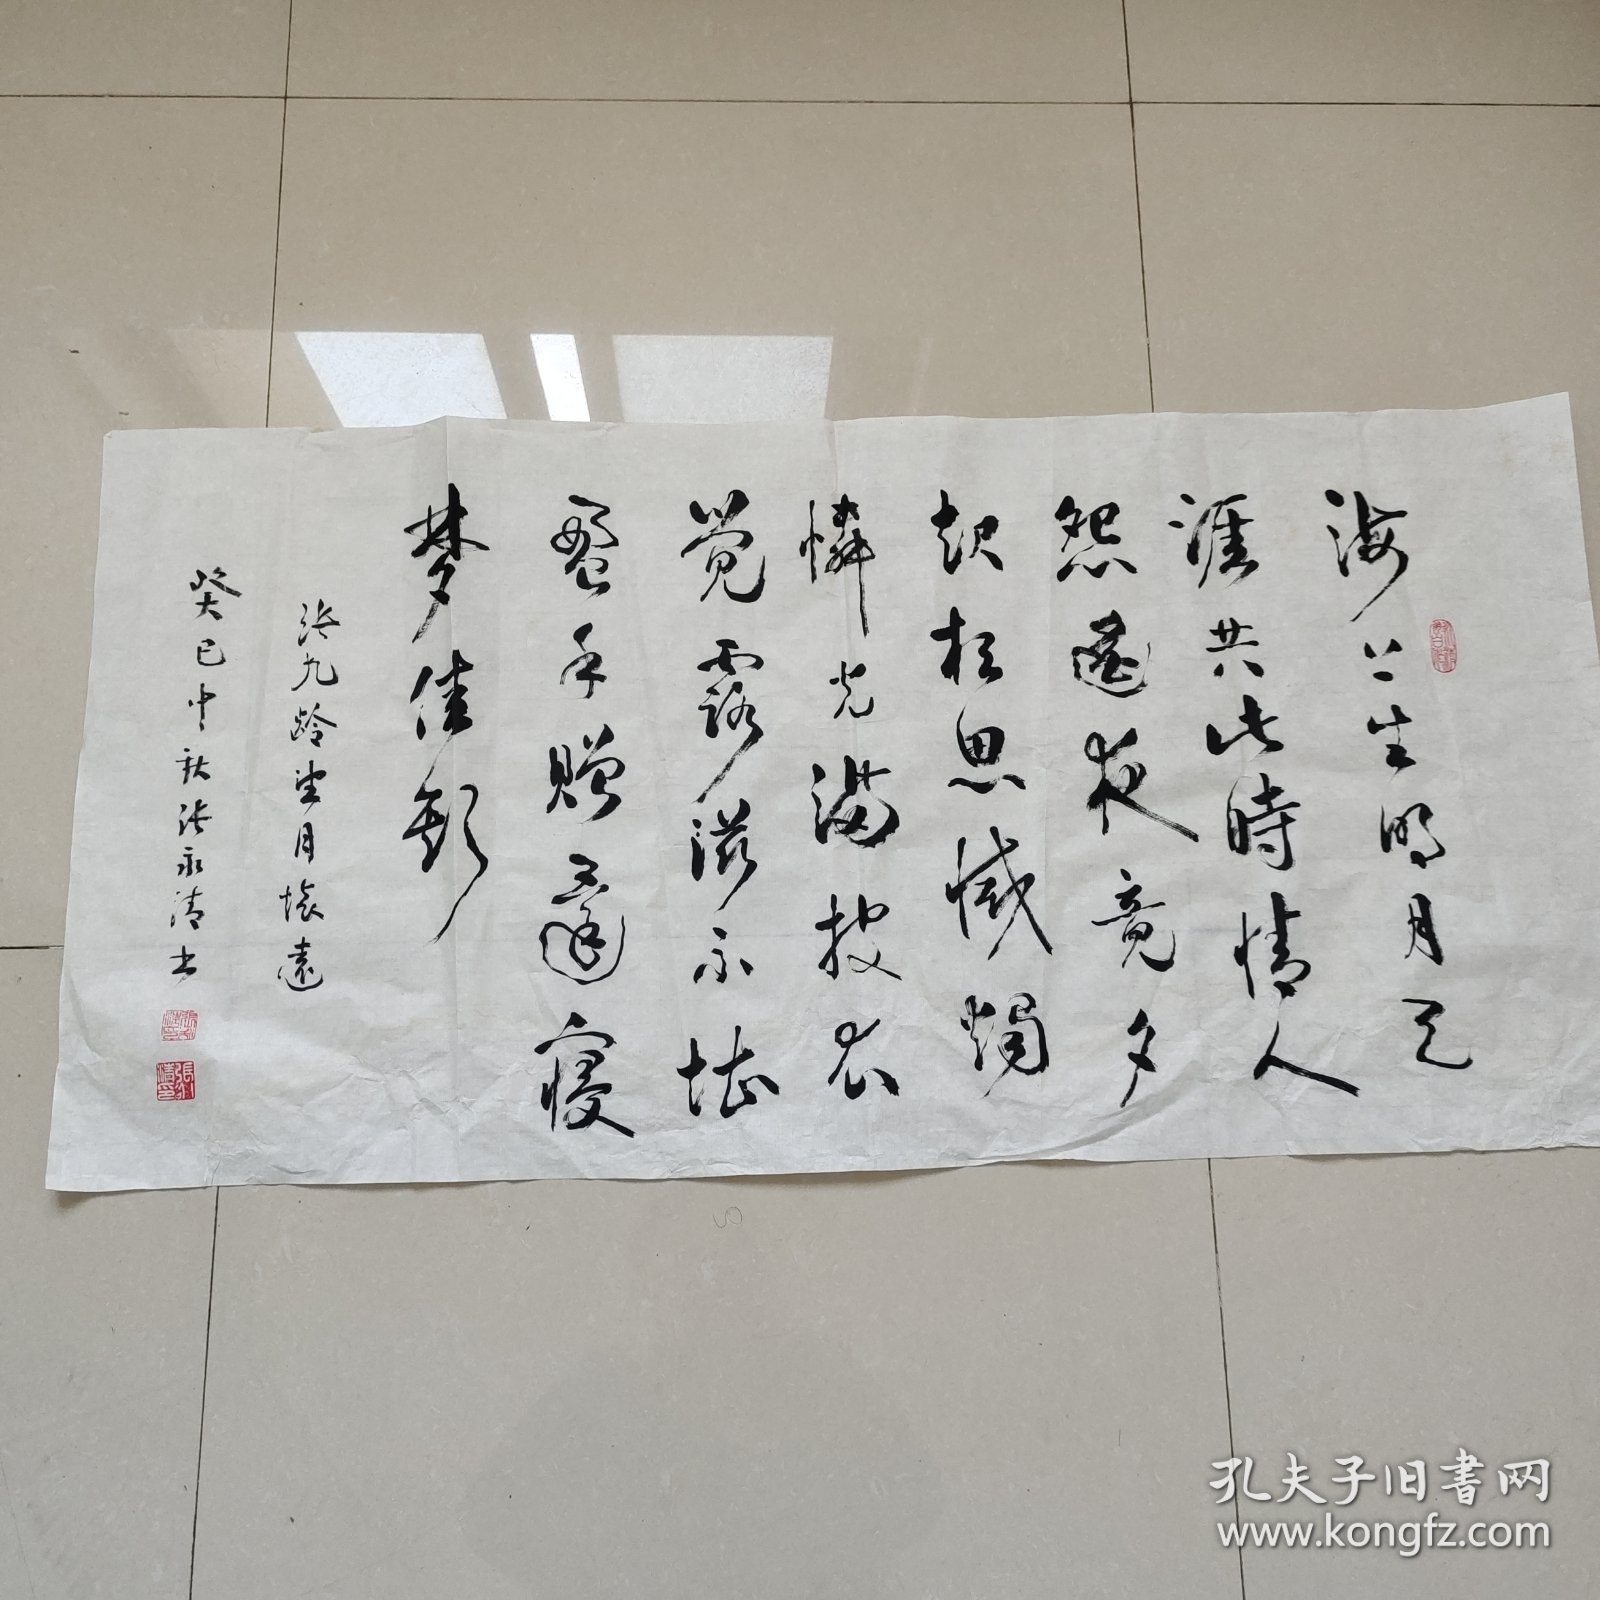 海上生明月天
涯共此時情人
怨遥夜竟夕
起相思滅燭
憐光滿披衣
觉露滋不堪
盈手贈還寝
梦佳期
张九龄望月懷遠
癸巳中秋张永清书
孔夫子旧書网
www.kongfz.com